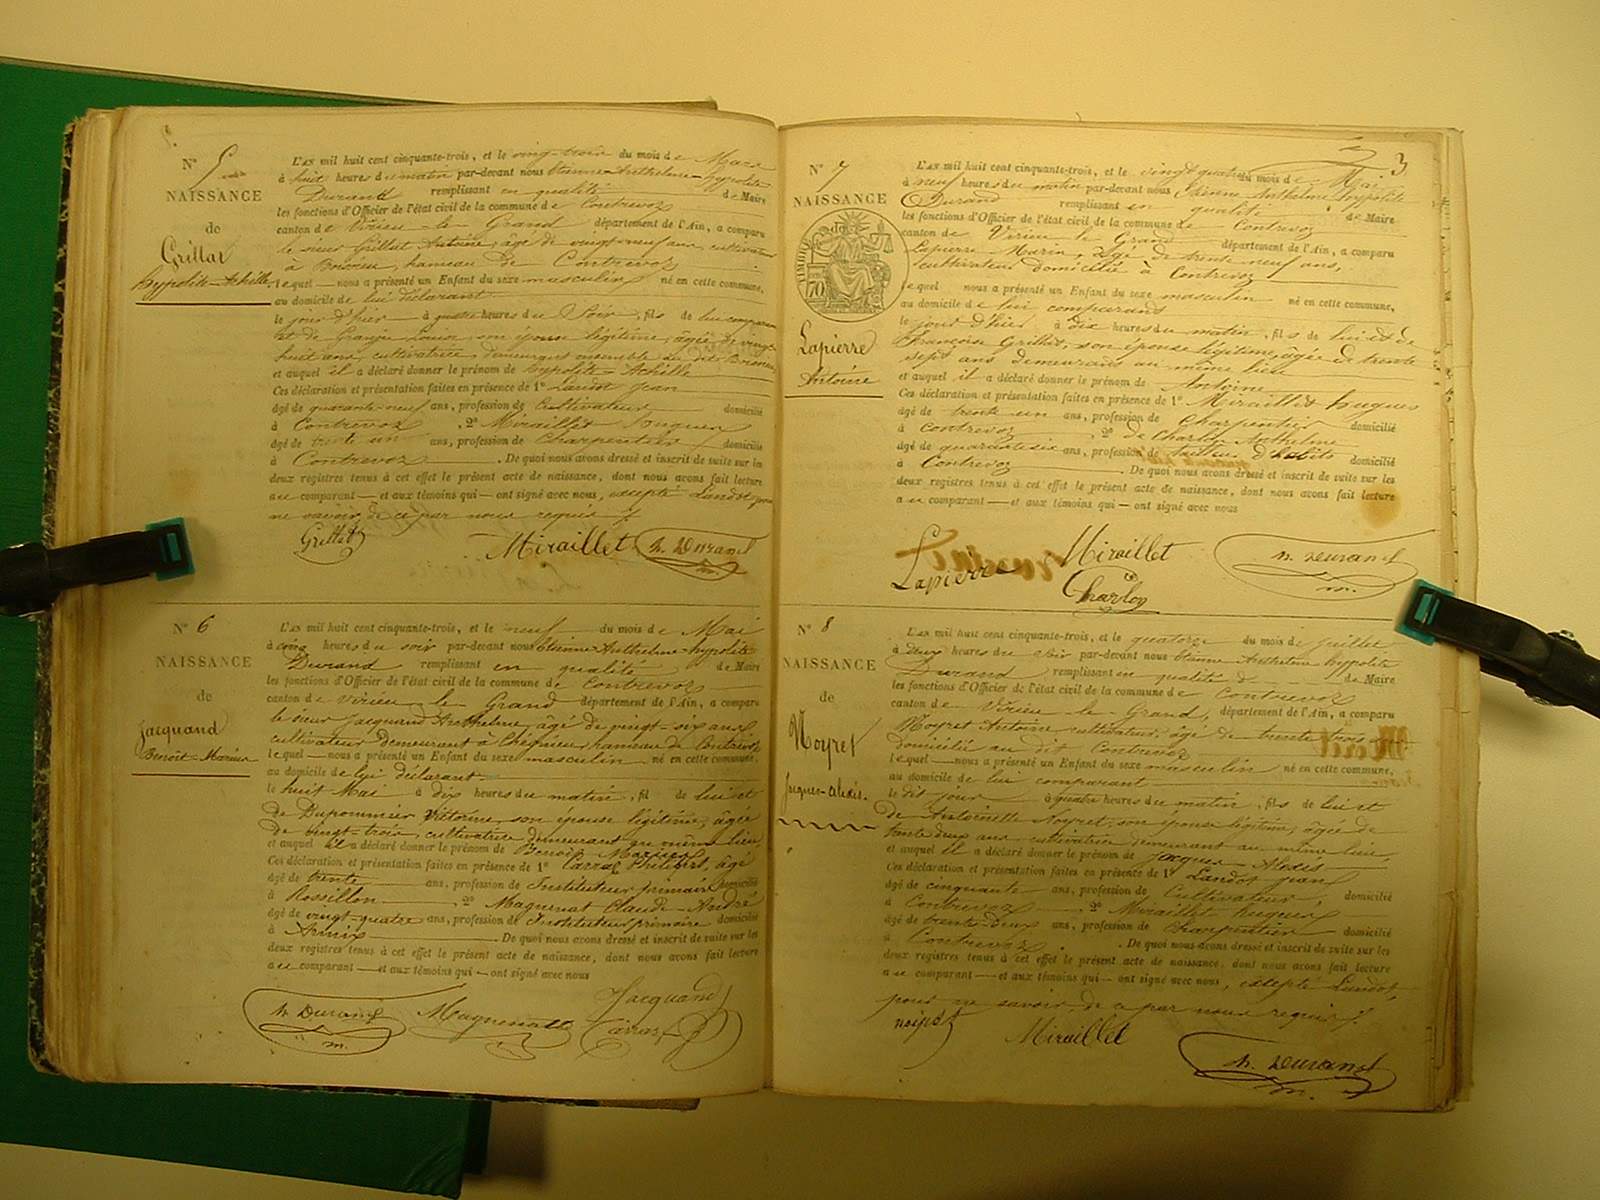 N° 5
NAISSANCE
de
Grillat
hypolite-Achille
L'AN mil huit cent cinquante-trois, et le vingt-trois du mois de Mars
à huit heures du matin par-devant nous Etienne-Anthelme-hypolite
Durand remplissant en qualité de Maire
les fonctions d'Officier de l'état civil de la commune de Contrevoz
canton de Virieu-le-Grand département de l'Ain, a comparu
le sieur Grillat Antoine, âgé de vingt-neuf ans, cultivateur
à hameau de Contrevoz
lequel nous a présenté un Enfant du sexe masculin né en cette commune,
au domicile de lui déclarant
le jour d'hier à quatre heures du Soir, fils de lui comparant
et de Louise, son épouse légitime, âgée de vingt-
huit ans, cultivatrice, demeurant ensemble au dit
et auquel il a déclaré donner le prénom de hypolite-Achille
Ces déclaration et présentation faites en présence de 1° Landot Jean
âgé de quarante-neuf ans, profession de Cultivateur domicilié
à Contrevoz, 2° Miraillet hugues
âgé de trente un ans, profession de Charpentier domicilié
à Contrevoz. De quoi nous avons dressé et inscrit de suite sur les
deux registres tenus à cet effet le présent acte de naissance, dont nous avons fait lecture
au comparant et aux témoins qui ont signé avec nous, excepté Landot pour
ne savoir, de ce par nous requis
Grillat Miraillet h. Durand
m.
N° 6
NAISSANCE
de
Jacquand
Benoît-Marius
L'AN mil huit cent cinquante-trois, et le neuf du mois de Mai
à cinq heures du soir par-devant nous Etienne-Anthelme-hypolite
Durand remplissant en qualité de Maire
les fonctions d'Officier de l'état civil de la commune de Contrevoz
canton de Virieu-le-Grand département de l'Ain, a comparu
le sieur Jacquand Anthelme, âgé de vingt-six ans,
cultivateur demeurant à hameau de Contrevoz
lequel nous a présenté un Enfant du sexe masculin né en cette commune,
au domicile de lui déclarant
le huit Mai à dix heures du matin, fil de lui et
de Dupommier Vittorine, son épouse légitime, âgée
de vingt-trois, cultivatrice demeurant au même lieu,
et auquel il a déclaré donner le prénom de Benoît-Marius
Ces déclaration et présentation faites en présence de 1° Carraz Philibert, âgé
âgé de trente ans, profession de Instituteur primaire domicilié
à Rossillon, 2° Magnenat Claude-André
âgé de vingt-quatre ans, profession de Instituteur primaire domicilié
à Armix. De quoi nous avons dressé et inscrit de suite sur les
deux registres tenus à cet effet le présent acte de naissance, dont nous avons fait lecture
au comparant et aux témoins qui ont signé avec nous
Jacquand
h. Durand Magnenat Carraz
m.
3
N° 7
NAISSANCE
TIMBRE
70
Lapierre
Antoine
L'AN mil huit cent cinquante-trois, et le vingt quatre du mois de Mai
à neuf heures du matin par-devant nous Etienne Anthelme hypolite
Durand remplissant en qualité de Maire
les fonctions d'Officier de l'état civil de la commune de Contrevoz
canton de Virieu-le-Grand département de l'Ain, a comparu
Lapierre Marin, âgé de trente neuf ans,
cultivateur domicilié à Contrevoz
lequel nous a présenté un Enfant du sexe masculin né en cette commune,
au domicile de lui comparant
le jour d'hier à dix heures du matin, fils de lui et de
Françoise Grillet, son épouse légitime, âgée de trente
sept ans demeurant au même lieu
et auquel il a déclaré donner le prénom de Antoine
Ces déclaration et présentation faites en présence de 1° Miraillet hugues
âgé de trente un ans, profession de Charpentier domicilié
à Contrevoz, 2° de Charlon Anthelme
âgé de quarante six ans, profession de tailleur d'habits domicilié
à Contrevoz. De quoi nous avons dressé et inscrit de suite sur les
deux registres tenus à cet effet le présent acte de naissance, dont nous avons fait lecture
au comparant et aux témoins qui ont signé avec nous
Miraillet h. Durand
Lapierre Charlon m.
N° 8
NAISSANCE
de
Noyret
Jacques-Alexis.
L'AN mil huit cent cinquante-trois, et le quatorze du mois de Juillet
à deux heures du soir par-devant nous Etienne Anthelme hypolite
Durand remplissant en qualité de Maire
les fonctions d'Officier de l'état civil de la commune de Contrevoz
canton de Virieu-le-Grand, département de l'Ain, a comparu
Noyret Antoine cultivateur, âgé de trente trois
domicilié au dit Contrevoz
lequel nous a présenté un Enfant du sexe masculin né en cette commune,
au domicile de lui comparant
le dit jour à quatre heures du matin, fils de lui et
de Antoinette Noyret, son épouse légitime, âgée de
trente deux ans, cultivatrice demeurant au même lieu,
et auquel il a déclaré donner le prénom de Jacques-Alexis
Ces déclaration et présentation faites en présence de 1° Landot jean
âgé de cinquante ans, profession de Cultivateur, domicilié
à Contrevoz, 2° Miraillet hugues
âgé de trente-deux ans, profession de Charpentier domicilié
à Contrevoz. De quoi nous avons dressé et inscrit de suite sur les
deux registres tenus à cet effet le présent acte de naissance, dont nous avons fait lecture
au comparant et aux témoins qui ont signé avec nous, excepté Landot,
pour ne savoir, de ce par nous requis
Miraillet
h. Durand
m.